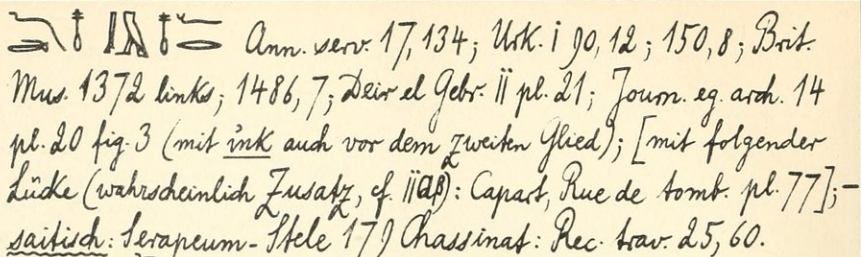 Ann. serv. 17, 134; Urk. I 90, 12; 150, 8; Brit.
Mus. 1372 links; 1486, 7; Deir el Gebr. II pl. 21; Journ. eg. arch. 14
pl. 20 fig. 3 (mit ỉnk auch vor dem zweiten Glied); [mit folgender
Lücke (wahrscheinlich Zusatz, cf. II aβ): Capart, Rue de tomb. pl. 77]; —
saitisch: Serapeum-Stele 179 Chassinat: Rec. trav. 25, 60.